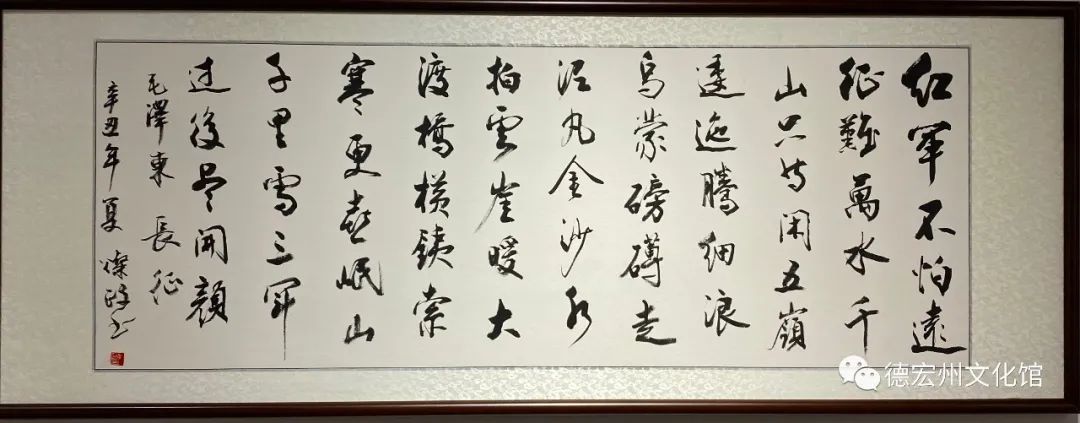 红軍不怕遠
征難萬水千
山只等闲五嶺
逶迤騰细浪
烏蒙磅礴走
泥丸金沙水
拍雲崖暖大
渡橋横鐵索
寒更喜岷山
千里雪三军
过後尽開顔
毛澤東 長征
辛丑年夏 书
德宏州文化馆